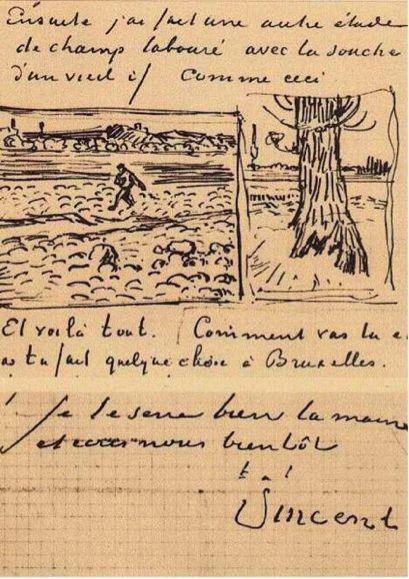 Ensuite j'ai fait une autre étude
de champ labouré avec la souche
d'un vieil if Comme ceci
Et voilà tout. Comment vas tu e
as tu fait quelque chose à Bruxelles.
je te serre bien la main
et nous bientôt
t. à t.
Vincent